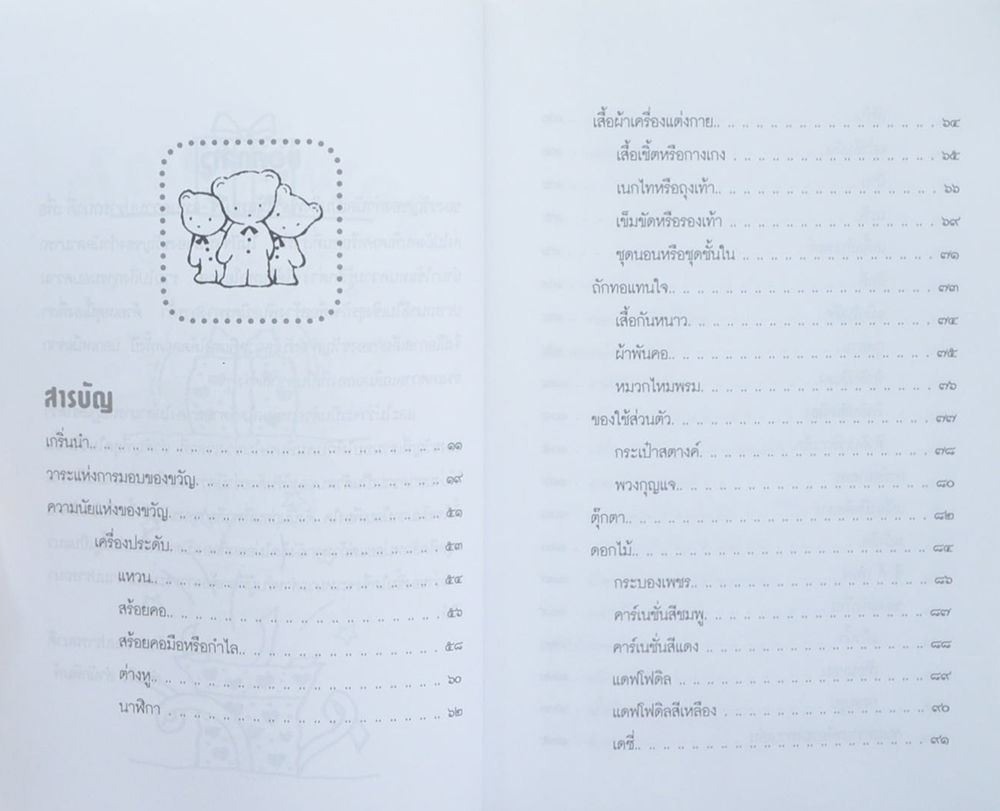 สารบัญ
เกริ่นนำ.. .. .. .. .. .. .. .. .. .. .. .. .. .. .. .. .. ๑๑
วาระแห่งการมอบของขวัญ. .. .. .. .. .. .. .. .. .. .. .. ๑๙
ความนัยแห่งของขวัญ .. .. .. .. .. .. .. .. .. .. .. .. ๕๑
เครื่องประดับ. .. .. .. .. .. .. .. .. .. .. .. .. .. ๕๓
แหวน.. .. .. .. .. .. .. .. .. .. .. .. .. .. ๕๔
สร้อยคอ.. .. .. .. .. .. .. .. .. .. .. .. .. ๕๖
สร้อยคอมือหรือกำไล.. .. .. .. .. .. .. .. .. .. ๕๘
ต่างหู.. .. .. .. .. .. .. .. .. .. .. .. .. .. ๖๐
นาฬิกา .. .. .. .. .. .. .. .. .. .. .. .. .. ๖๒
เสื้อผ้าเครื่องแต่งกาย.. .. .. .. .. .. .. .. .. .. .. .. ๖๔
เสื้อเชิ้ตหรือกางเกง .. .. .. .. .. .. .. .. .. .. .. ๖๕
เนกไทหรือถุงเท้า.. .. .. .. .. .. .. .. .. .. .. .. ๖๖
เข็มขัดหรือรองเท้า .. .. .. .. .. .. .. .. .. .. .. ๖๙
ชุดนอนหรือชุดชั้นใน .. .. .. .. .. .. .. .. .. .. ๗๑
ถักทอแทนใจ.. .. .. .. .. .. .. .. .. .. .. .. .. .. ๗๓
เสื้อกันหนาว. .. .. .. .. .. .. .. .. .. .. .. .. ๗๔
ผ้าพันคอ.. .. .. .. .. .. .. .. .. .. .. .. .. .. ๗๕
หมวกไหมพรม. .. .. .. .. .. .. .. .. .. .. .. .. ๗๖
ของใช้ส่วนตัว. .. .. .. .. .. .. .. .. .. .. .. .. .. ๗๗
กระเป๋าสตางค์. .. .. .. .. .. .. .. .. .. .. .. .. ๗๘
พวงกุญแจ.. .. .. .. .. .. .. .. .. .. .. .. .. .. ๘๐
ตุ๊กตา.. .. .. .. .. .. .. .. .. .. .. .. .. .. .. .. .. ๘๒
ดอกไม้.. .. .. .. .. .. .. .. .. .. .. .. .. .. .. .. ๘๔
กระบองเพชร.. .. .. .. .. .. .. .. .. .. .. .. .. ๘๖
คาร์เนชั่นสีชมพู. .. .. .. .. .. .. .. .. .. .. .. .. ๘๗
คาร์เนชั่นสีแดง .. .. .. .. .. .. .. .. .. .. .. .. ๘๘
แดฟโฟดิล .. .. .. .. .. .. .. .. .. .. .. .. .. .. ๘๙
แดฟโฟดิลสีเหลือง .. .. .. .. .. .. .. .. .. .. .. ๙๐
เดซี่.. .. .. .. .. .. .. .. .. .. .. .. .. .. .. .. ๙๑